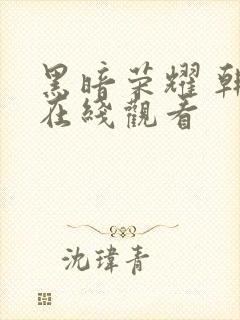 黑暗荣耀 韩
在綫觀看
沈瑋青